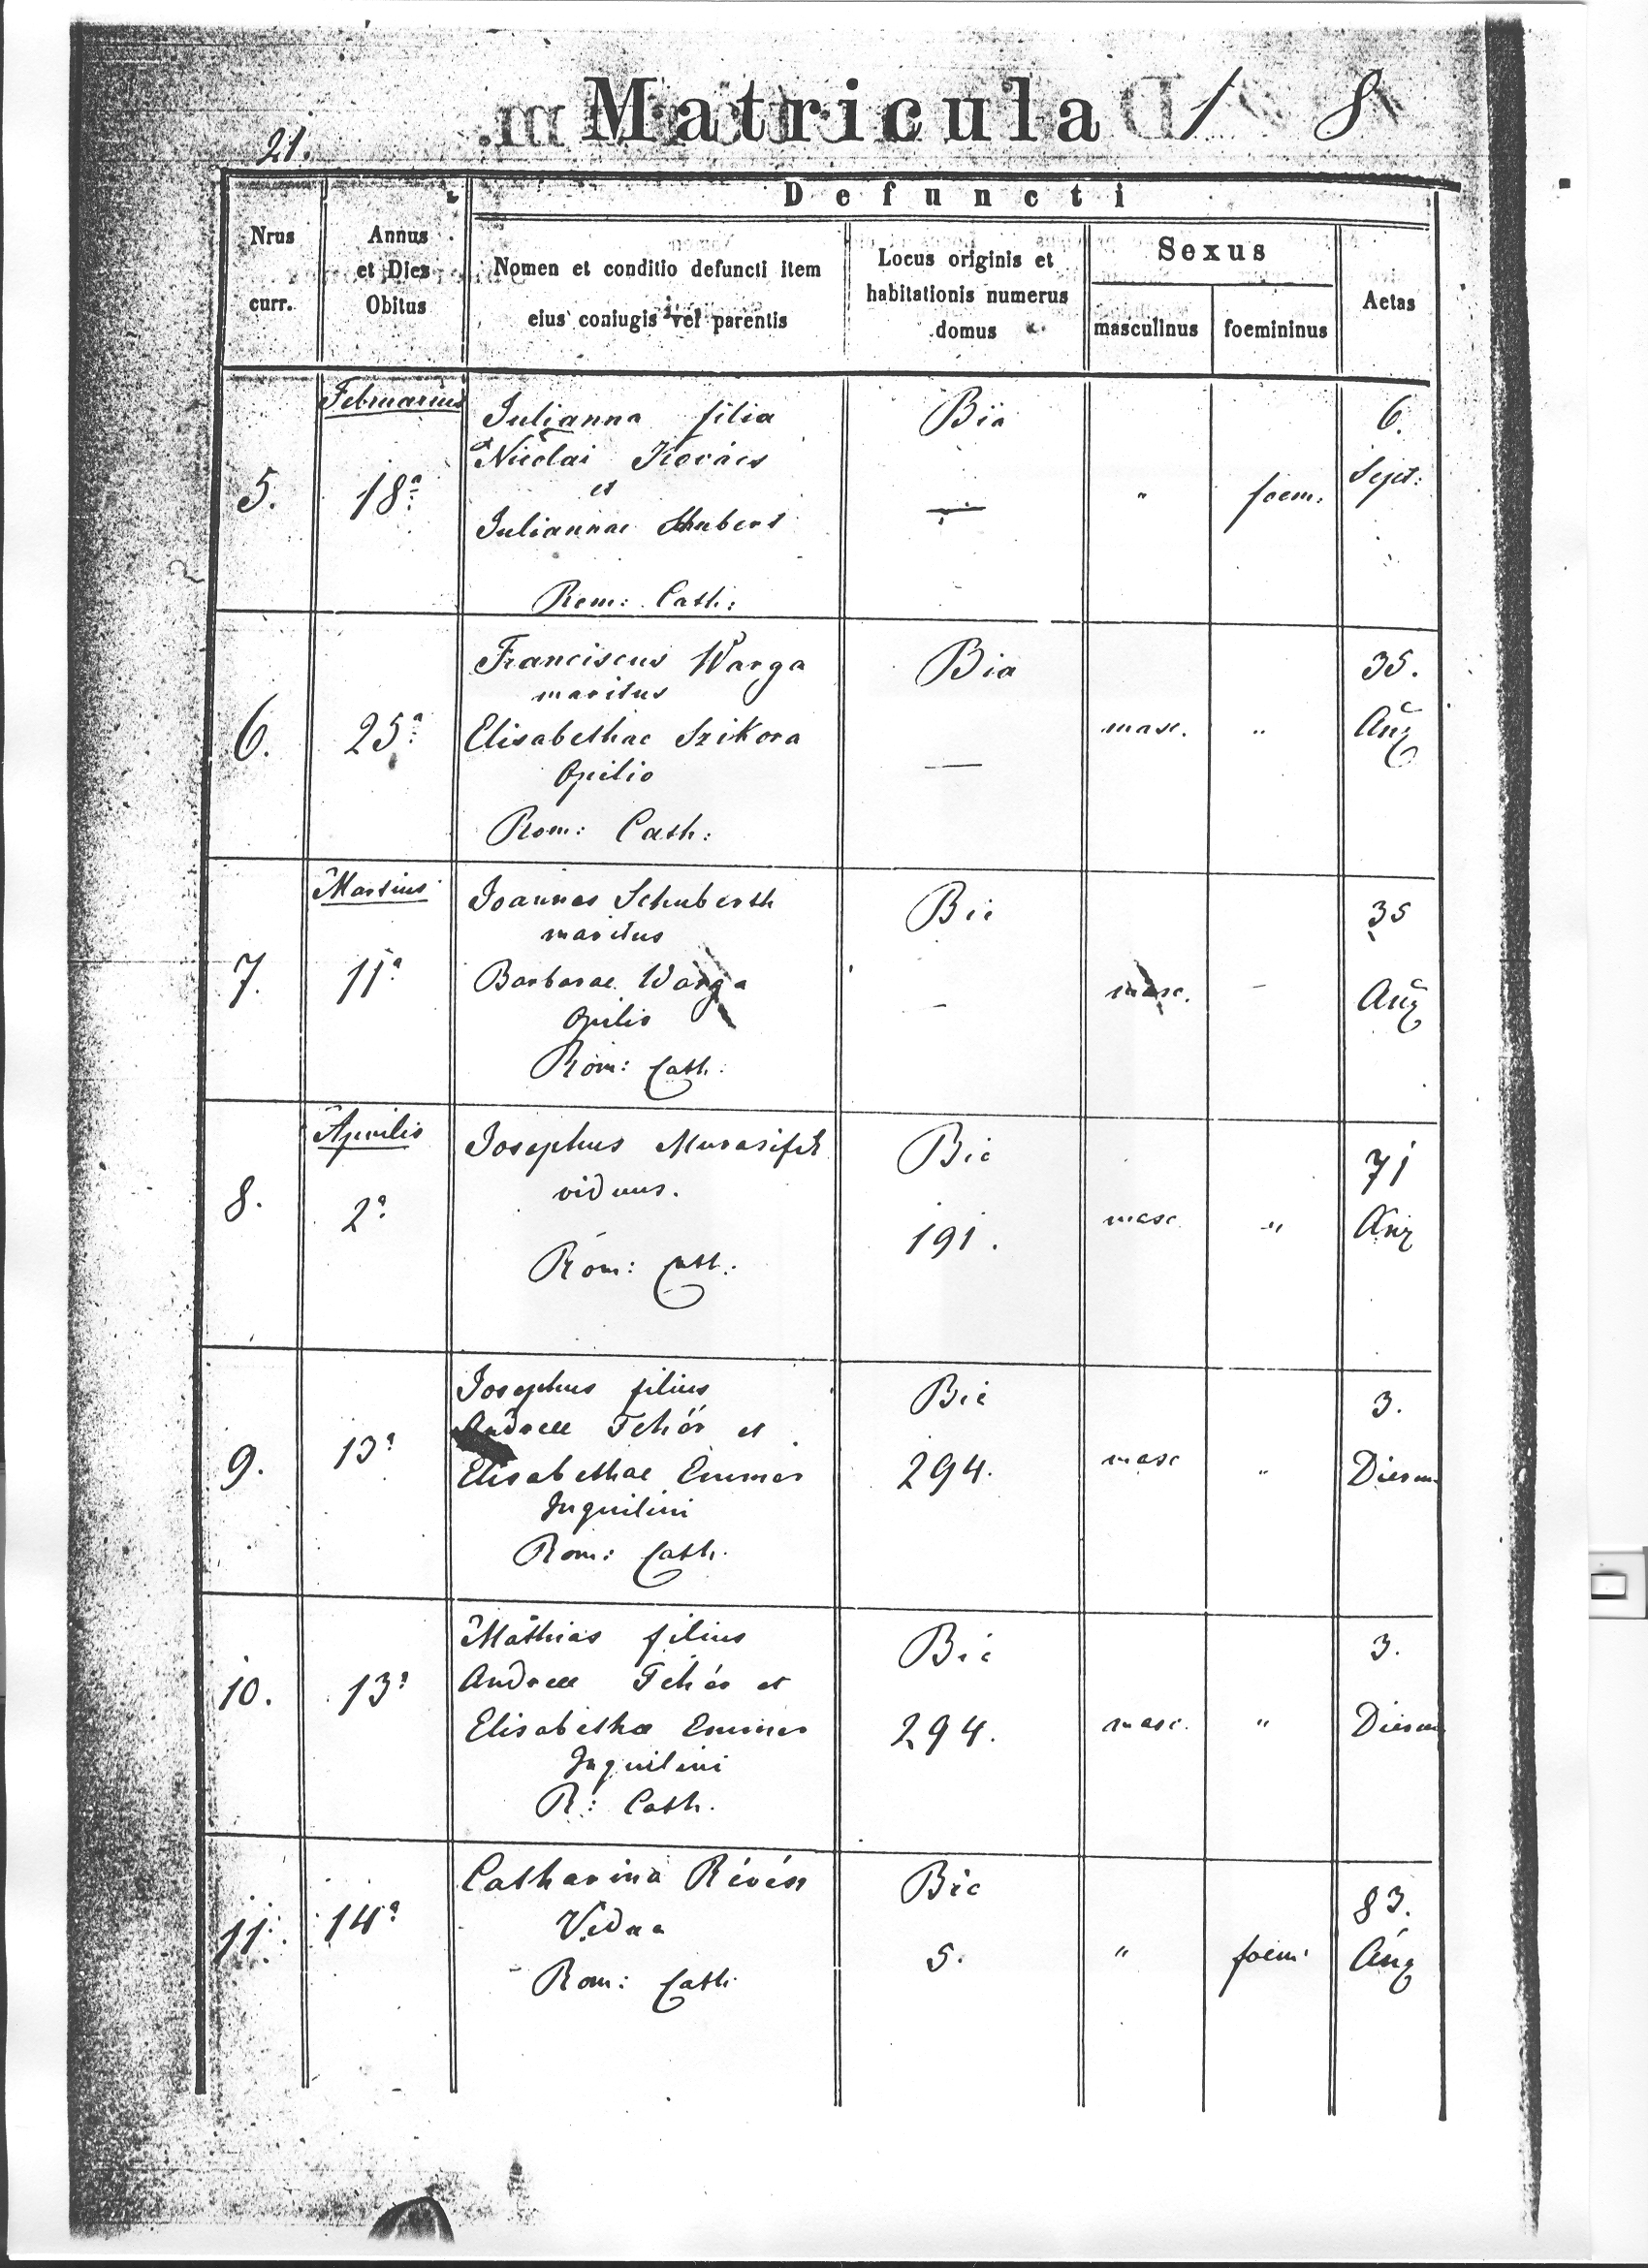 Matricula 1 8
21.
Defuncti
Nrus
curr.
Annus
et Dies
Obitus
Nomen et conditio defuncti item
eius coniugis vel parentis
Locus originis et
habitationis numerus
domus
Sexus
masculinus
foemininus
Aetas
Februarius
5.
18ª
Julianna filia
Nicolai Kovács
et
Juliannae Shubert
Rom: Cath:
Bia
—
"
foem:
6.
Sept:
6.
25ª
Franciscus Warga
maritus
Elisabethae Szikora
Opilio
Rom: Cath:
Bia
—
masc.
"
35.
Añ
Martius
7.
11ª
Joannes Schuberth
maritus
Barbarae Warga
Opilio
Rom: Cath:
Bia
-
masc.
-
35
Añ
Aprilis
8.
2ª
Josephus
viduus.
Rom: Cath:
Bia
191.
masc
"
71
Añ
9.
13ª
Josephus filius
Andreae Fehér et
Elisabethae Emmer
Inquilini
Rom: Cath.
Bia
294.
masc
"
3.
Dierum
10.
13ª
Mathias filius
Andreae Fehér et
Elisabethae Emmer
Inquilini
R: Cath.
Bia
294.
masc.
"
3.
Dierum
11.
14ª
Catharina Révész
Vidua
Rom: Cath.
Bia
5.
"
foem:
83.
Añ